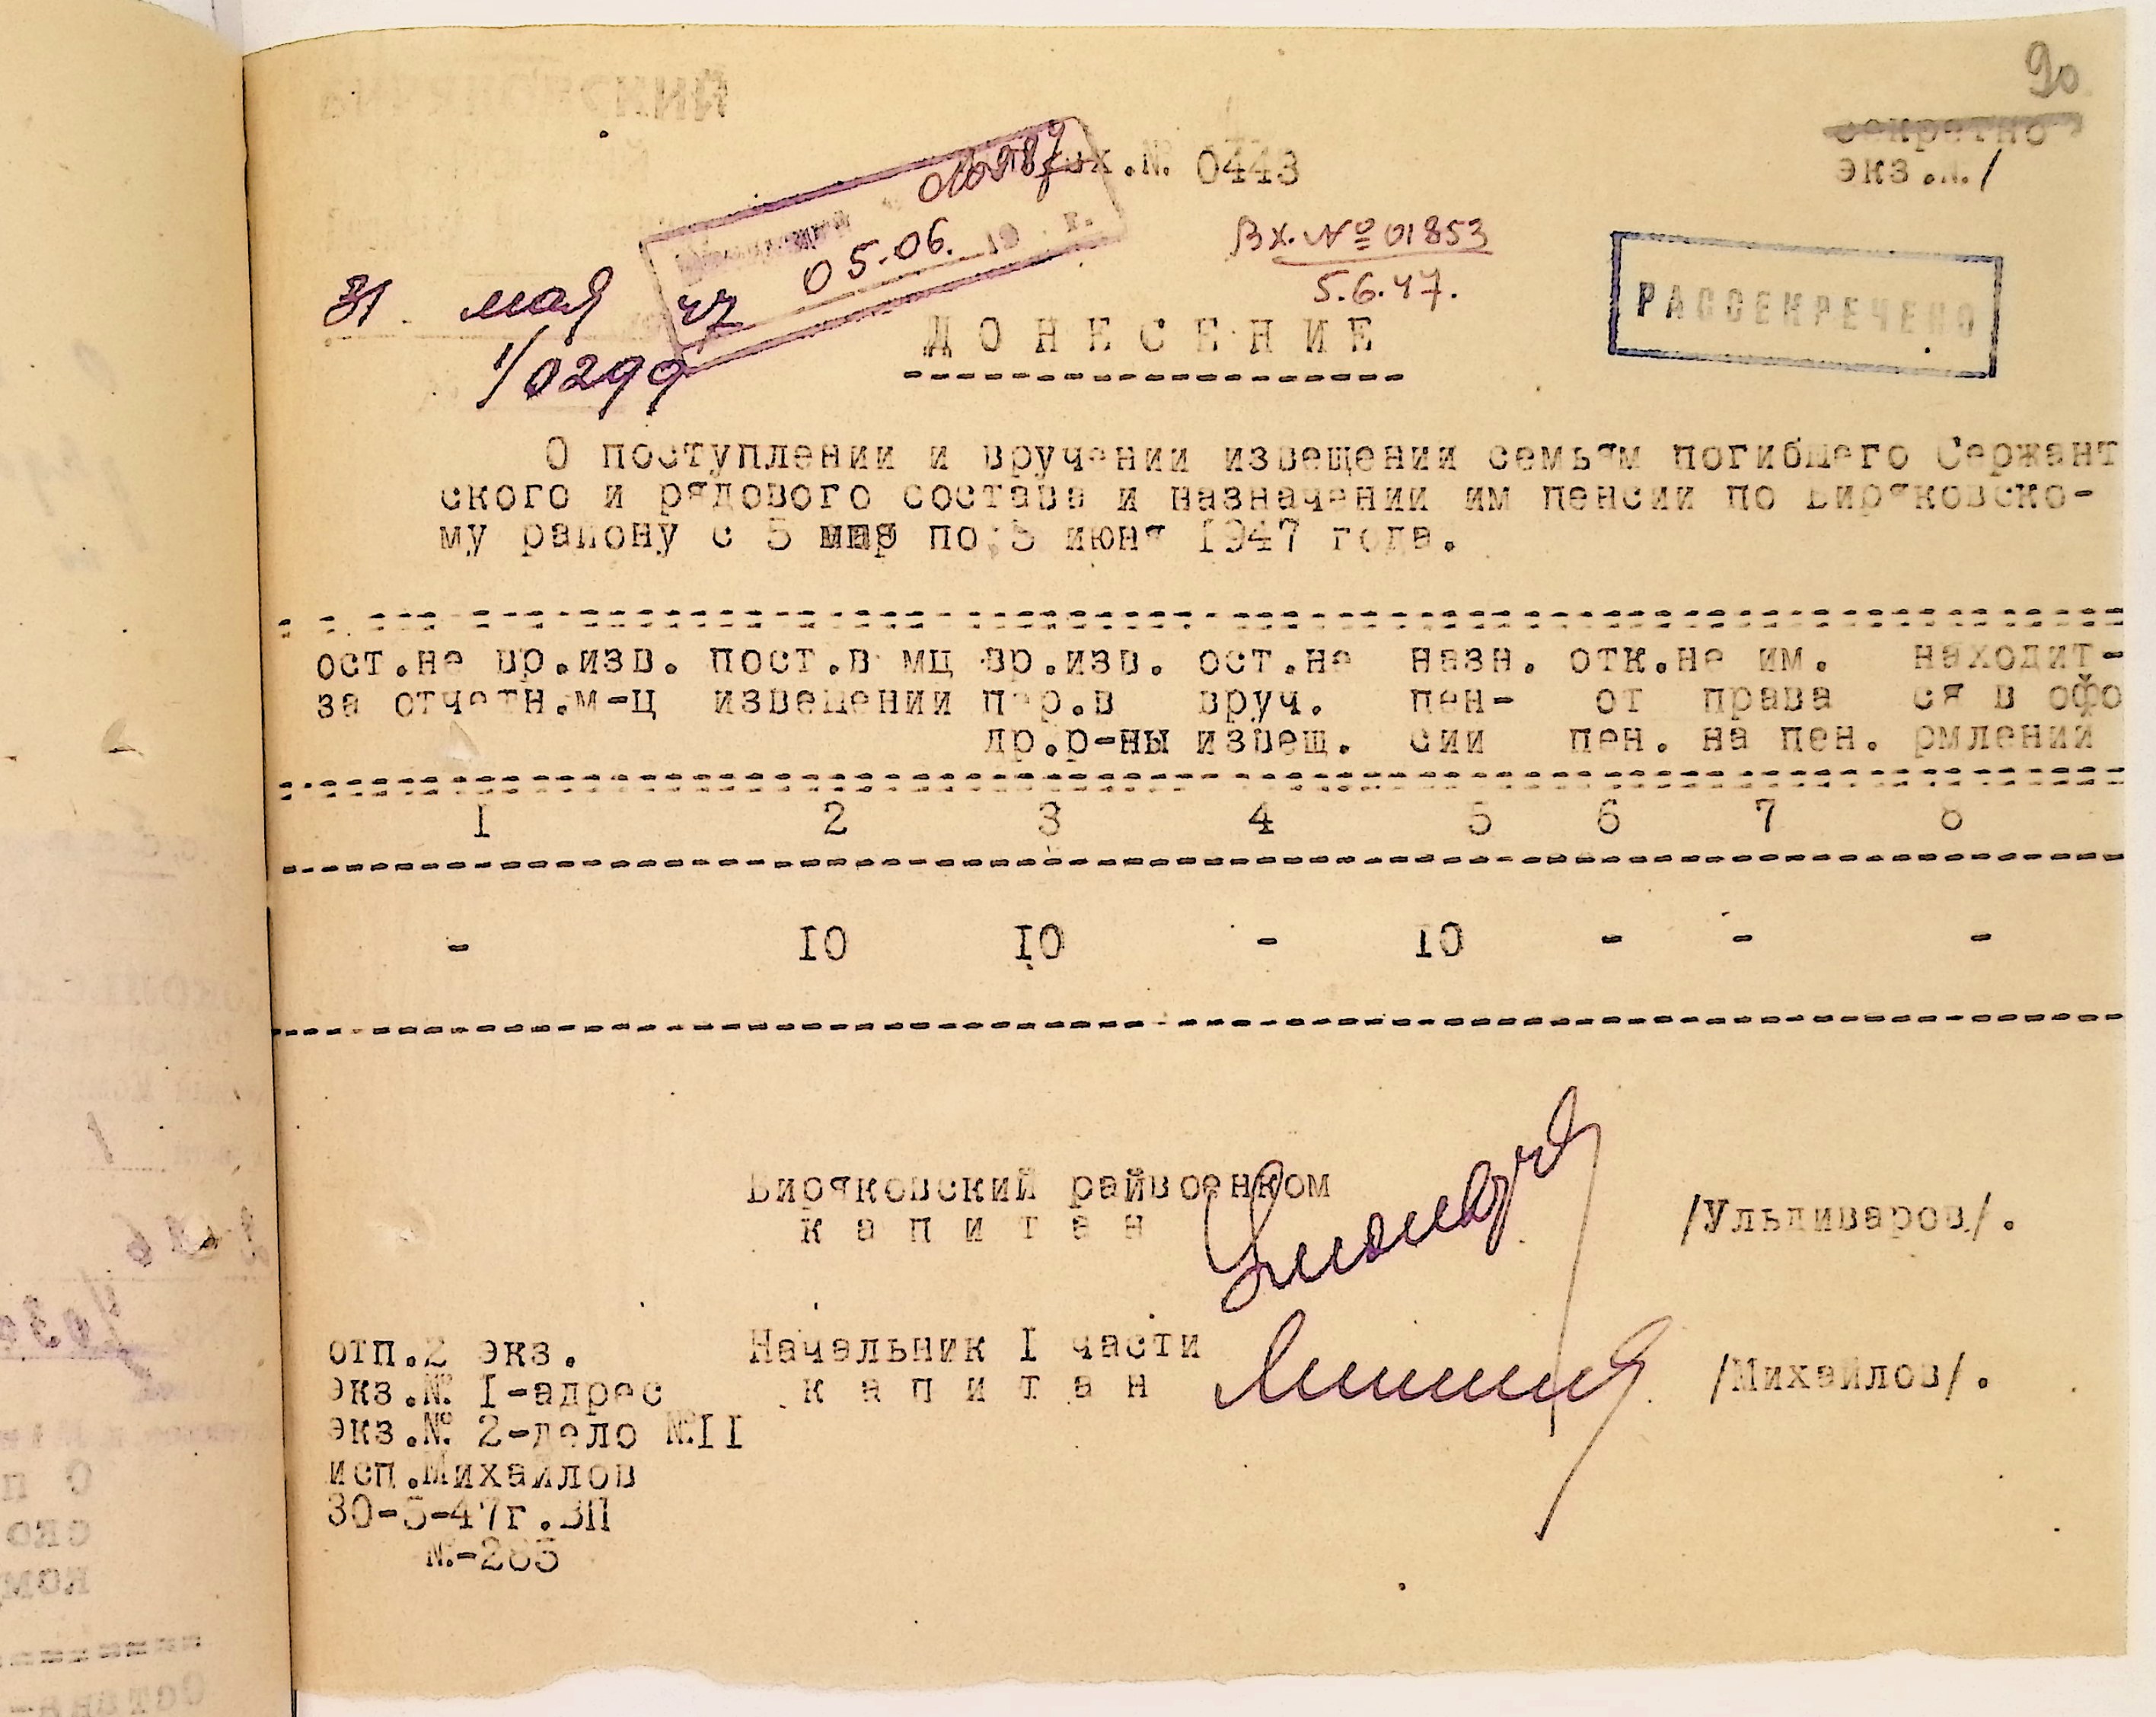 90
секретно
экз.№ 1
вх.№ 0443
05.06. 19 г.
Вх. № 01853
5.6.47.
РАССЕКРЕЧЕНО
31 мая 47
1/0299
ДОНЕСЕНИЕ
О поступлении и вручении извещении семьям погибшего Сержант
ского и рядового состава и назначении им пенсии по Биряковско-
му району с 5 мая по 5 июня 1947 года.
ост.не вр.изв. пост.в мц вр.изв. ост.не назн. отк.не им. находит-
за отчетн.м-ц извещении пер.в вруч. пен- от права ся в офо
др.р-ны извещ. сии пен. на пен. рмлении
I 2 3 4 5 6 7 8
- IO IO - IO - - -
Биряковский райвоенком
капитан /Ульдиваров/.
отп.2 экз. Начальник I части
экз.№ I-адрес капитан /Михайлов/.
экз.№ 2-дело №II
исп.Михайлов
30-5-47г.ЗП
№-285